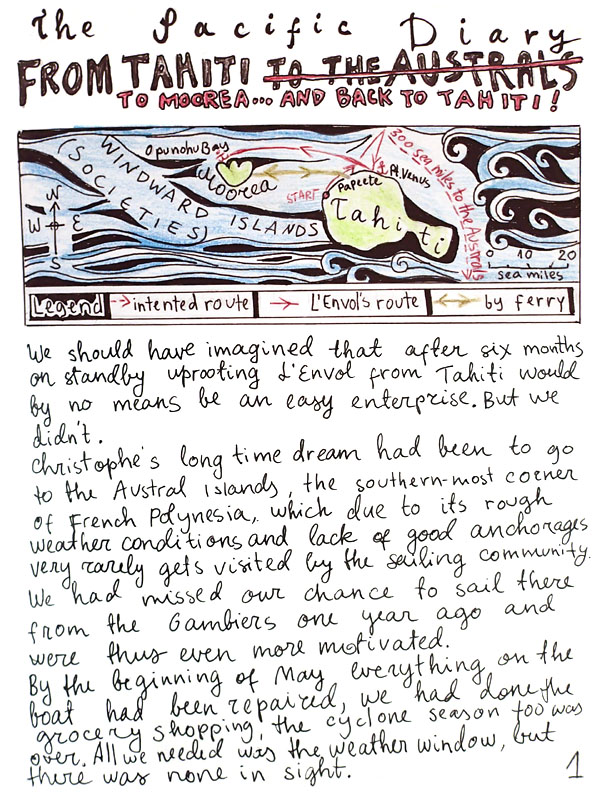 The Pacific Diary
FROM TAHITI TO THE AUSTRALS
TO MOOREA... AND BACK TO TAHITI!
WINDWARD ISLANDS
(SOCIETIES)
Opunohu Bay
Moorea
START
Papeete
Pt. Venus
Tahiti
300 sea miles to the Australs
N
W E
S
0 10 20
sea miles
Legend intented route L'Envol's route by ferry
We should have imagined that after six months
on standby uprooting L'Envol from Tahiti would
by no means be an easy enterprise. But we
didn't.
Christophe's long time dream had been to go
to the Austral Islands, the southern-most corner
of French Polynesia, which due to its rough
weather conditions and lack of good anchorages
very rarely gets visited by the sailing community.
We had missed our chance to sail there
from the Gambiers one year ago and
were thus even more motivated.
By the beginning of May everything on the
boat had been repaired, we had done the
grocery shopping, the cyclone season too was
over. All we needed was the weather window, but
there was none in sight.
1